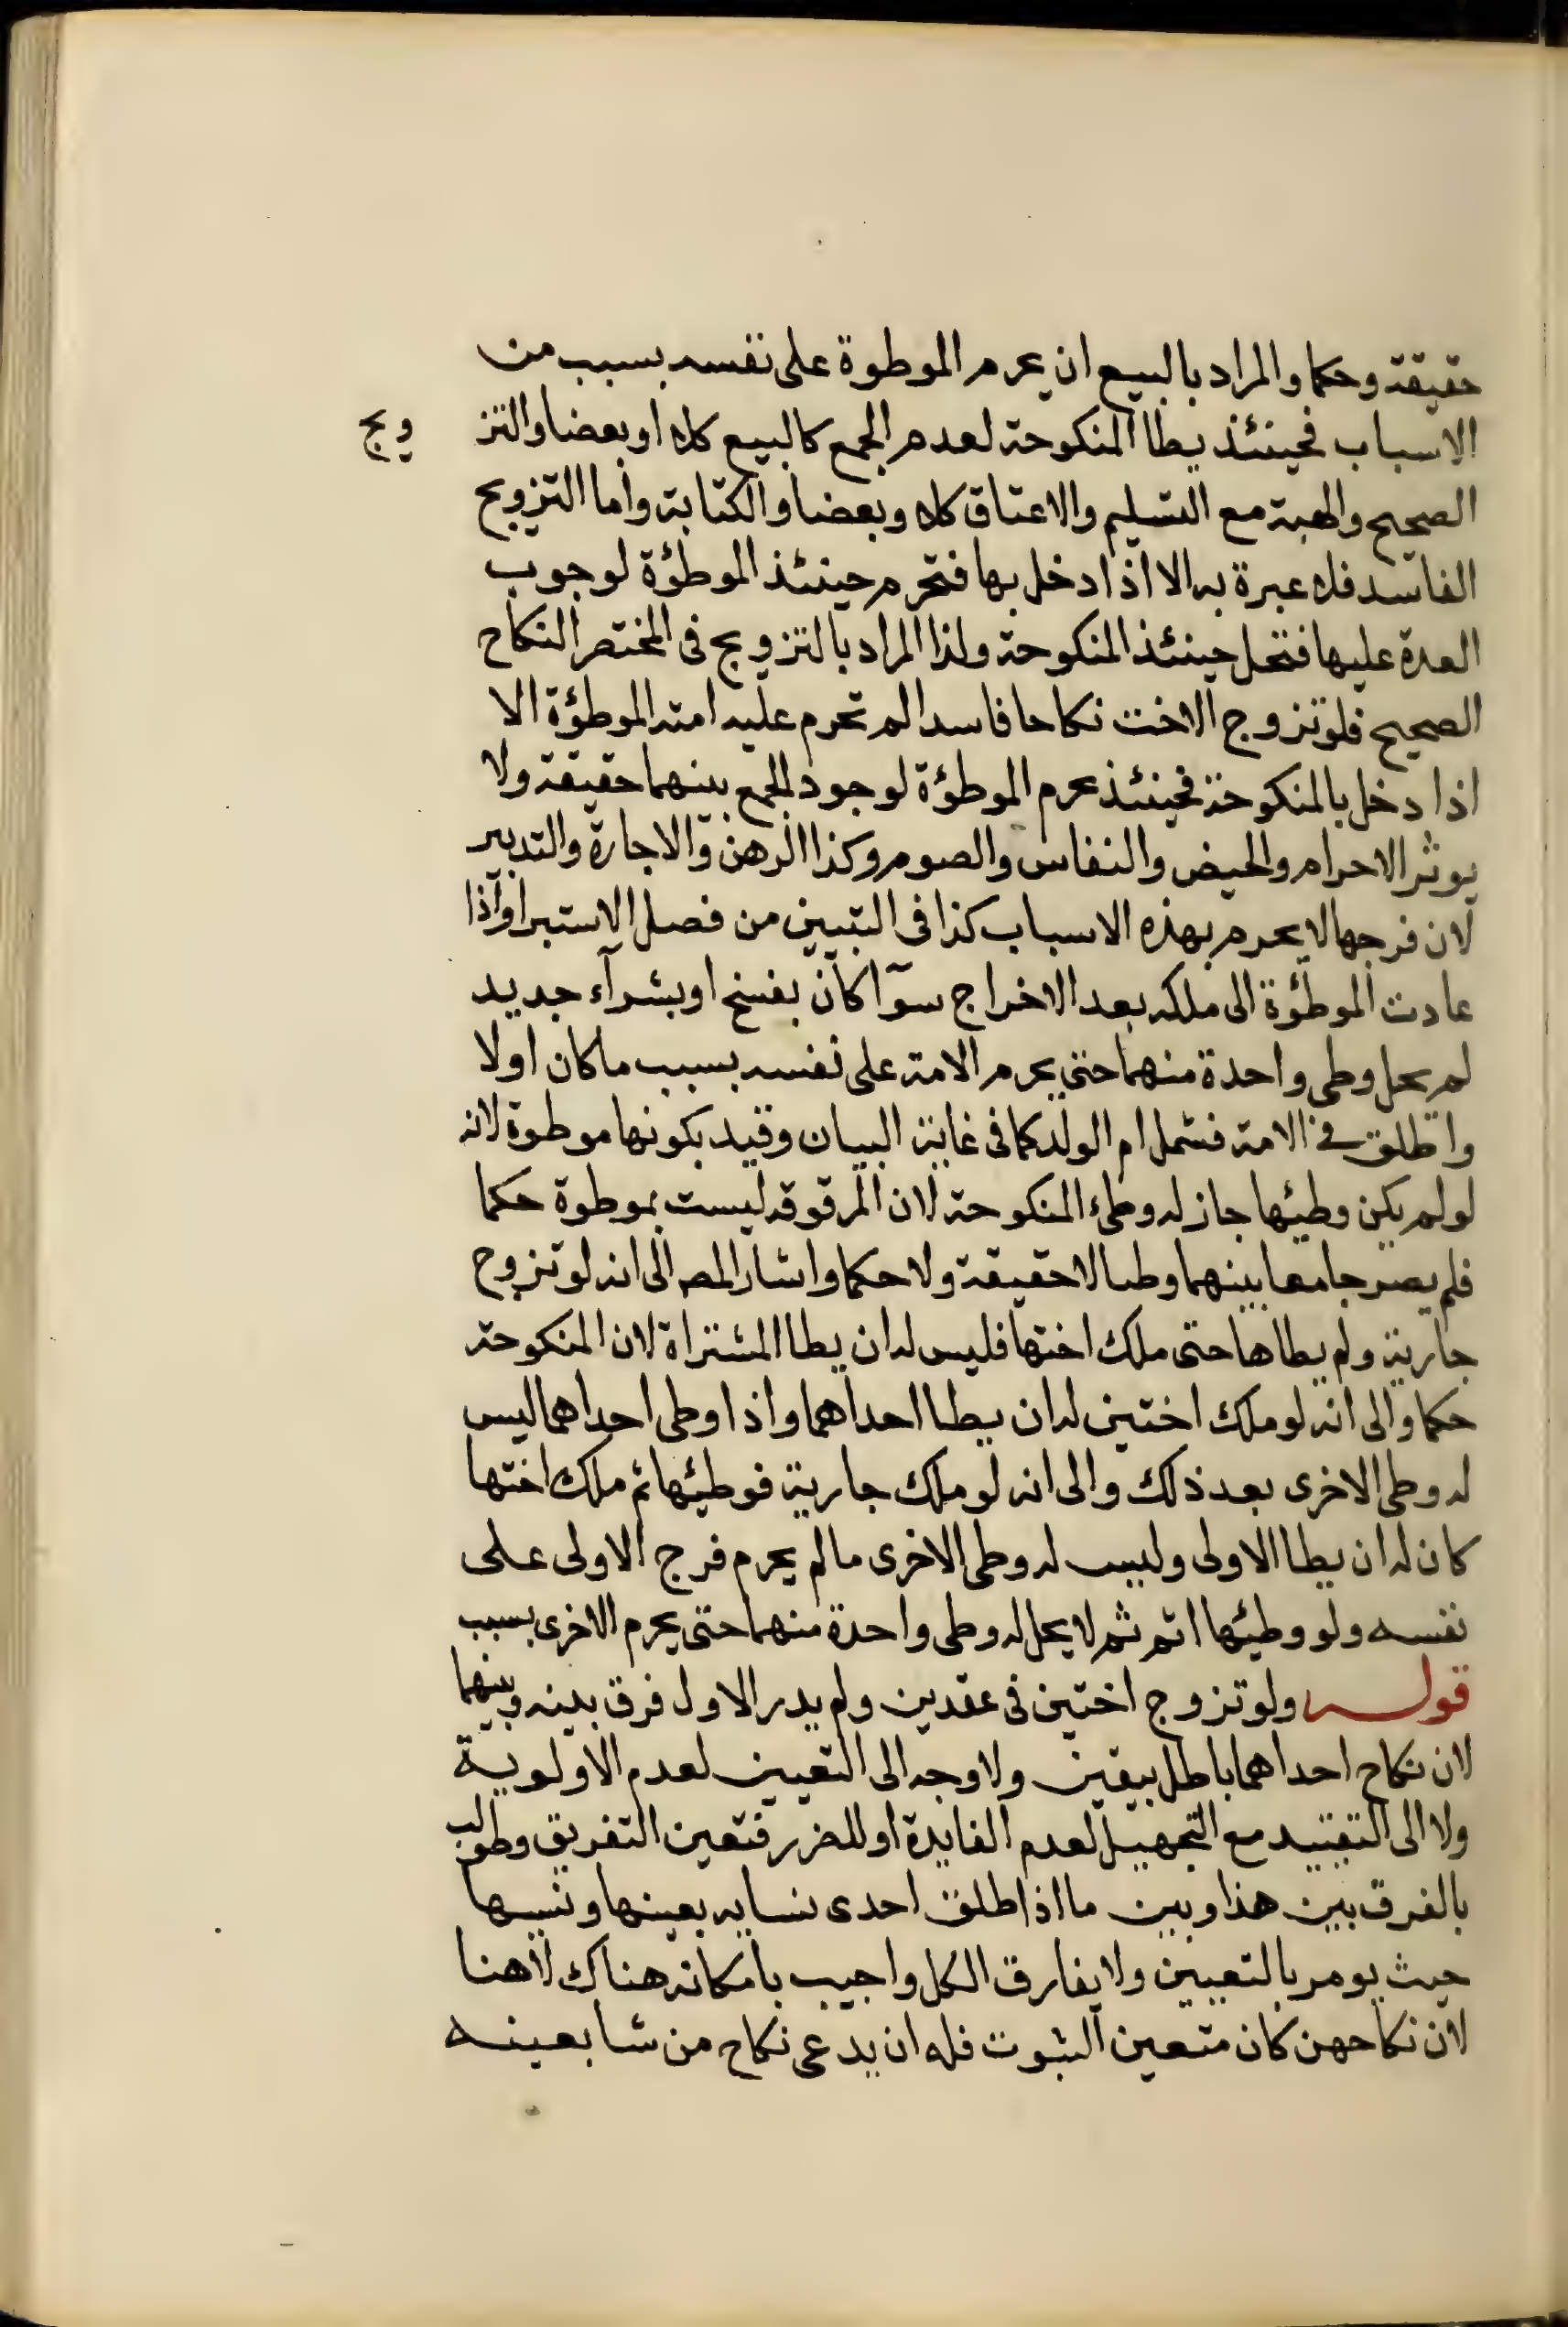 حقيقة وحكما والمراد بالبيع ان يحرم الموطوة على نفسه بسبب من
الاسباب فحينئذ يطا المنكوحة لعدم الجمع كالبيع كلا او بعضا والتزويج
الصحيح والهبة مع التسليم والاعتاق كلا وبعضا والكتابة واما التزويج
الفاسد فلا عبرة به الا اذا دخل بها فتحرم حينئذ الموطؤة لوجوب
العدة عليها فتحل حينئذ المنكوحة ولذا المراد بالتزويج في المختصر النكاح
الصحيح فلو تزوج الاخت نكاحا فاسدا لم تحرم عليه امته الموطؤة الا
اذا دخل بالمنكوحة فحينئذ تحرم الموطؤة لوجود الجمع بينهما حقيقة ولا
يوثر الاحرام والحيض والنفاس والصوم وكذا الرهن والاجارة والتدبير
لان فرجها لا يحرم بهذه الاسباب كذا في التبيين من فصل الاستبرا واذا
عادت الموطؤة الى ملكه بعد الاخراج سوآ كان بفسخ او بشرآء جديد
لم يحل وطى واحدة منهما حتى يحرم الامة على نفسه بسبب ما كان اولا
واطلق في الامة فشمل ام الولد كما في غاية البيان وقيد بكونها موطوة لانه
لو لم يكن وطيئها جاز له وطىء المنكوحة لان المرقوقه ليست بموطوة حكما
فلم يصر جامعا بينهما وطا لا حقيقة ولا حكما واشار المص الى انه لو تزوج
جارية ولم يطاها حتى ملك اختها فليس له ان يطا المشتراة لان المنكوحة
حكما والى انه لو ملك اختين له ان يطا احداهما واذا وطى احداهما ليس
له وطى الاخرى بعد ذلك والى انه لو ملك جارية فوطيئها ثم ملك اختها
كان له ان يطا الاولى وليس له وطى الاخرى ما لم يحرم فرج الاولى على
نفسه ولو وطيئها اثم ثم لا يحل له وطى واحدة منهما حتى يحرم الاخرى بسبب
قوله ولو تزوج اختين في عقدين ولم يدر الاول فرق بينه وبينهما
لان نكاح احداهما باطل بيقين ولا وجه الى التعيين لعدم الاولوية
ولا الى التقييد مع التجهيل لعدم الفايدة او للضرر فتعين التفريق وطولب
بالفرق بين هذا وبين ما اذا طلق احدى نسايه بعينها ونسيها
حيث يومر بالتعيين ولا يفارق الكل واجيب بامكانه هناك لا هنا
لان نكاحهن كان متعين الثبوت فله ان يدعى نكاح من شا بعينه